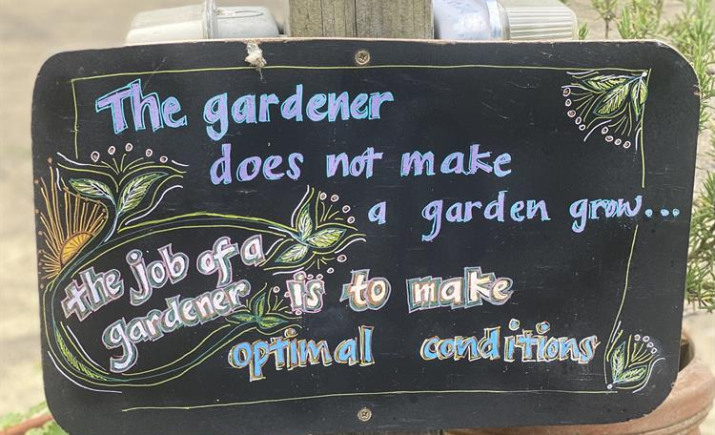 The gardener
does not make
a garden grow...
the job of a
gardener is to make
optimal conditions